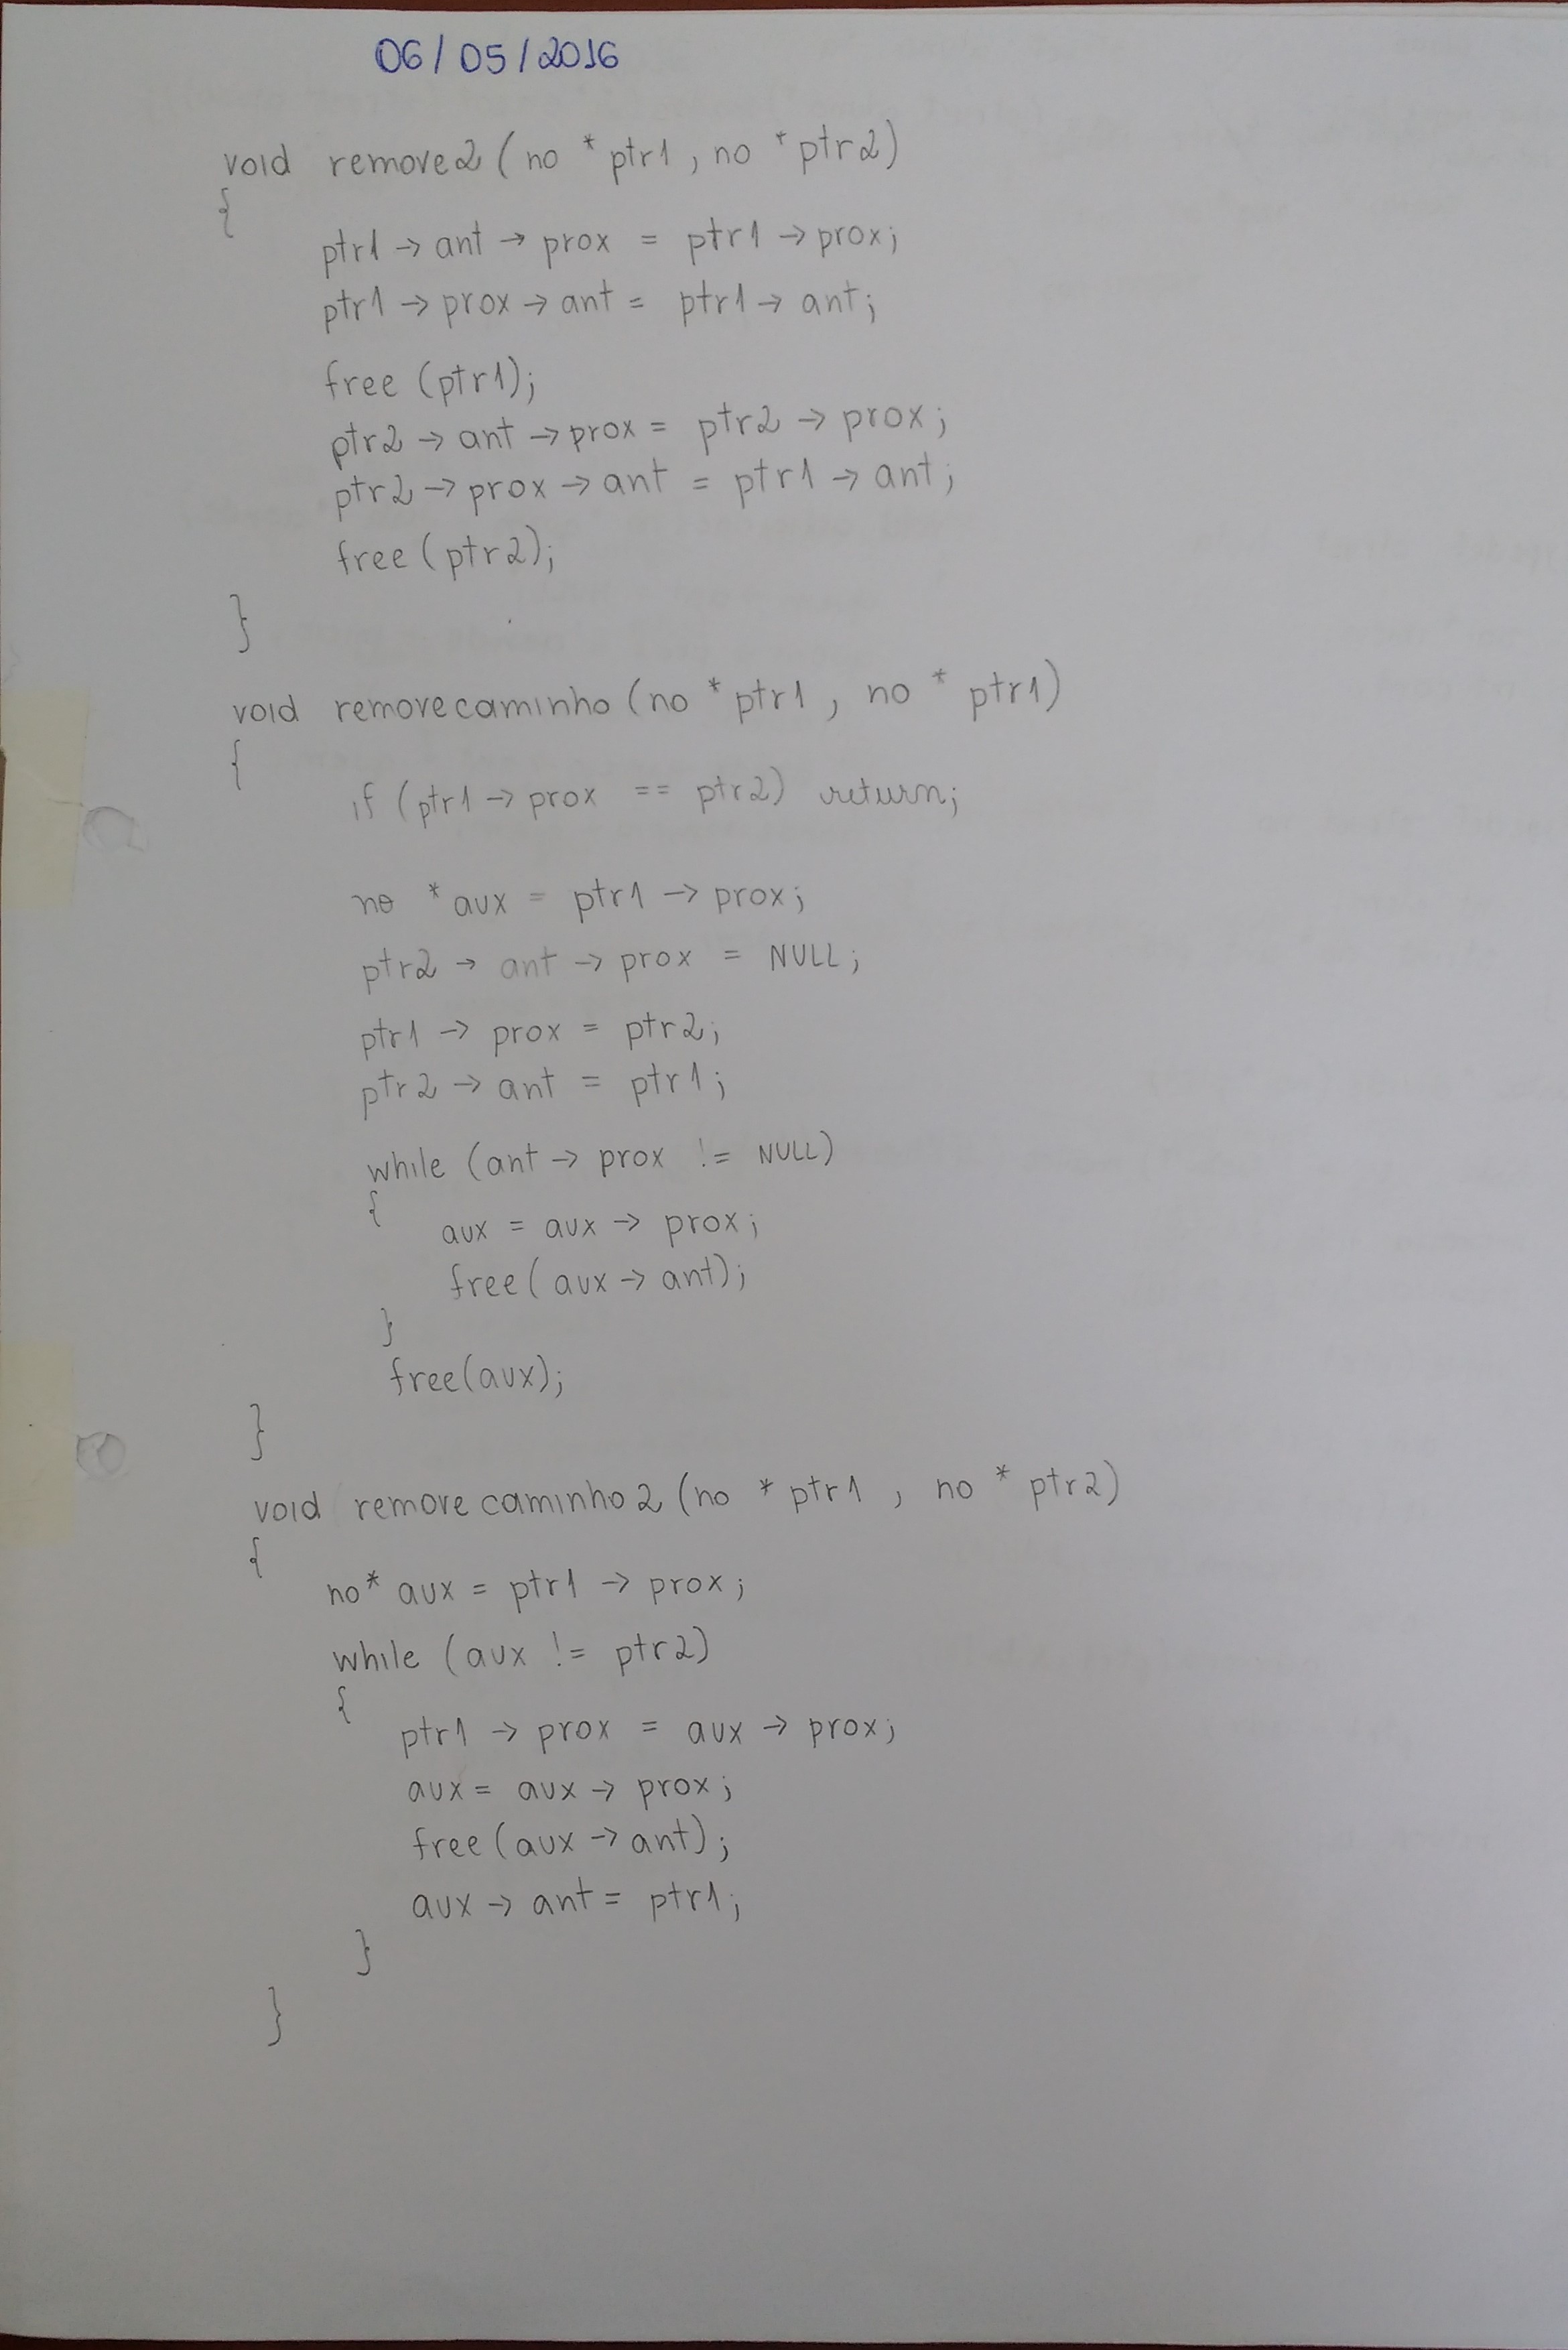 06/05/2016
void remove2 (no *ptr1, no *ptr2)
{
ptr1 → ant → prox = ptr1 → prox;
ptr1 → prox → ant = ptr1 → ant;
free (ptr1);
ptr2 → ant → prox = ptr2 → prox;
ptr2 → prox → ant = ptr1 → ant;
free (ptr2);
}
void removecaminho (no *ptr1, no * ptr1)
{
if (ptr1 → prox == ptr2) return;
no *aux = ptr1 → prox;
ptr2 → ant → prox = NULL;
ptr1 → prox = ptr2;
ptr2 → ant = ptr1;
while (ant → prox != NULL)
{
aux = aux → prox;
free (aux → ant);
}
free(aux);
}
void removecaminho2 (no * ptr1, no * ptr2)
{
no* aux = ptr1 → prox;
while (aux != ptr2)
{
ptr1 → prox = aux → prox;
aux = aux → prox;
free (aux → ant);
aux → ant = ptr1;
}
}